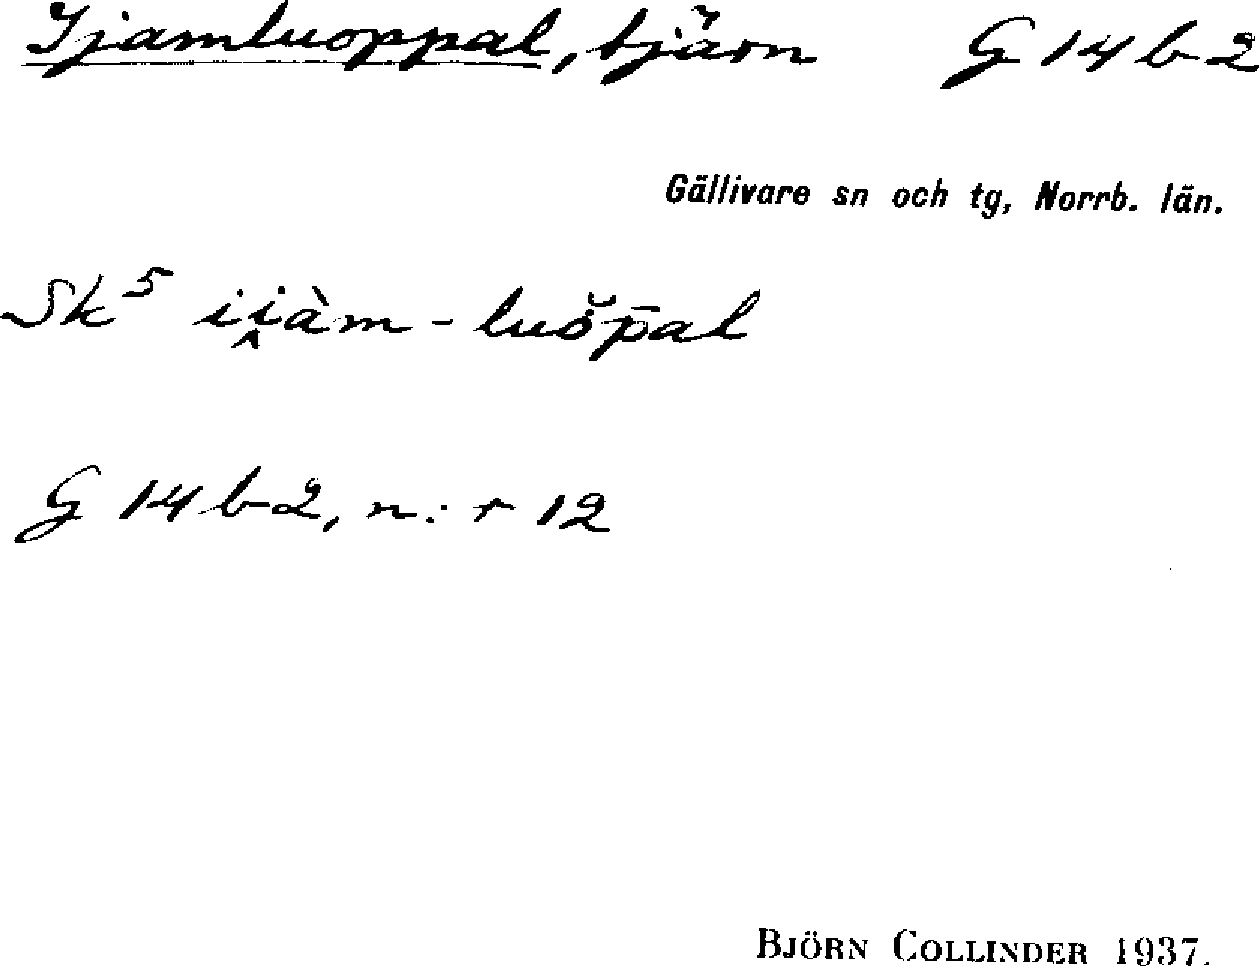 Ijamluoppal, tjärn G 14 b 2
Gällivare sn och tg, Norrb. län.
Sk⁵ ii̭àm-luŏp̄al
G 14 b 2, n:r 12
BJÖRN COLLINDER 1937.